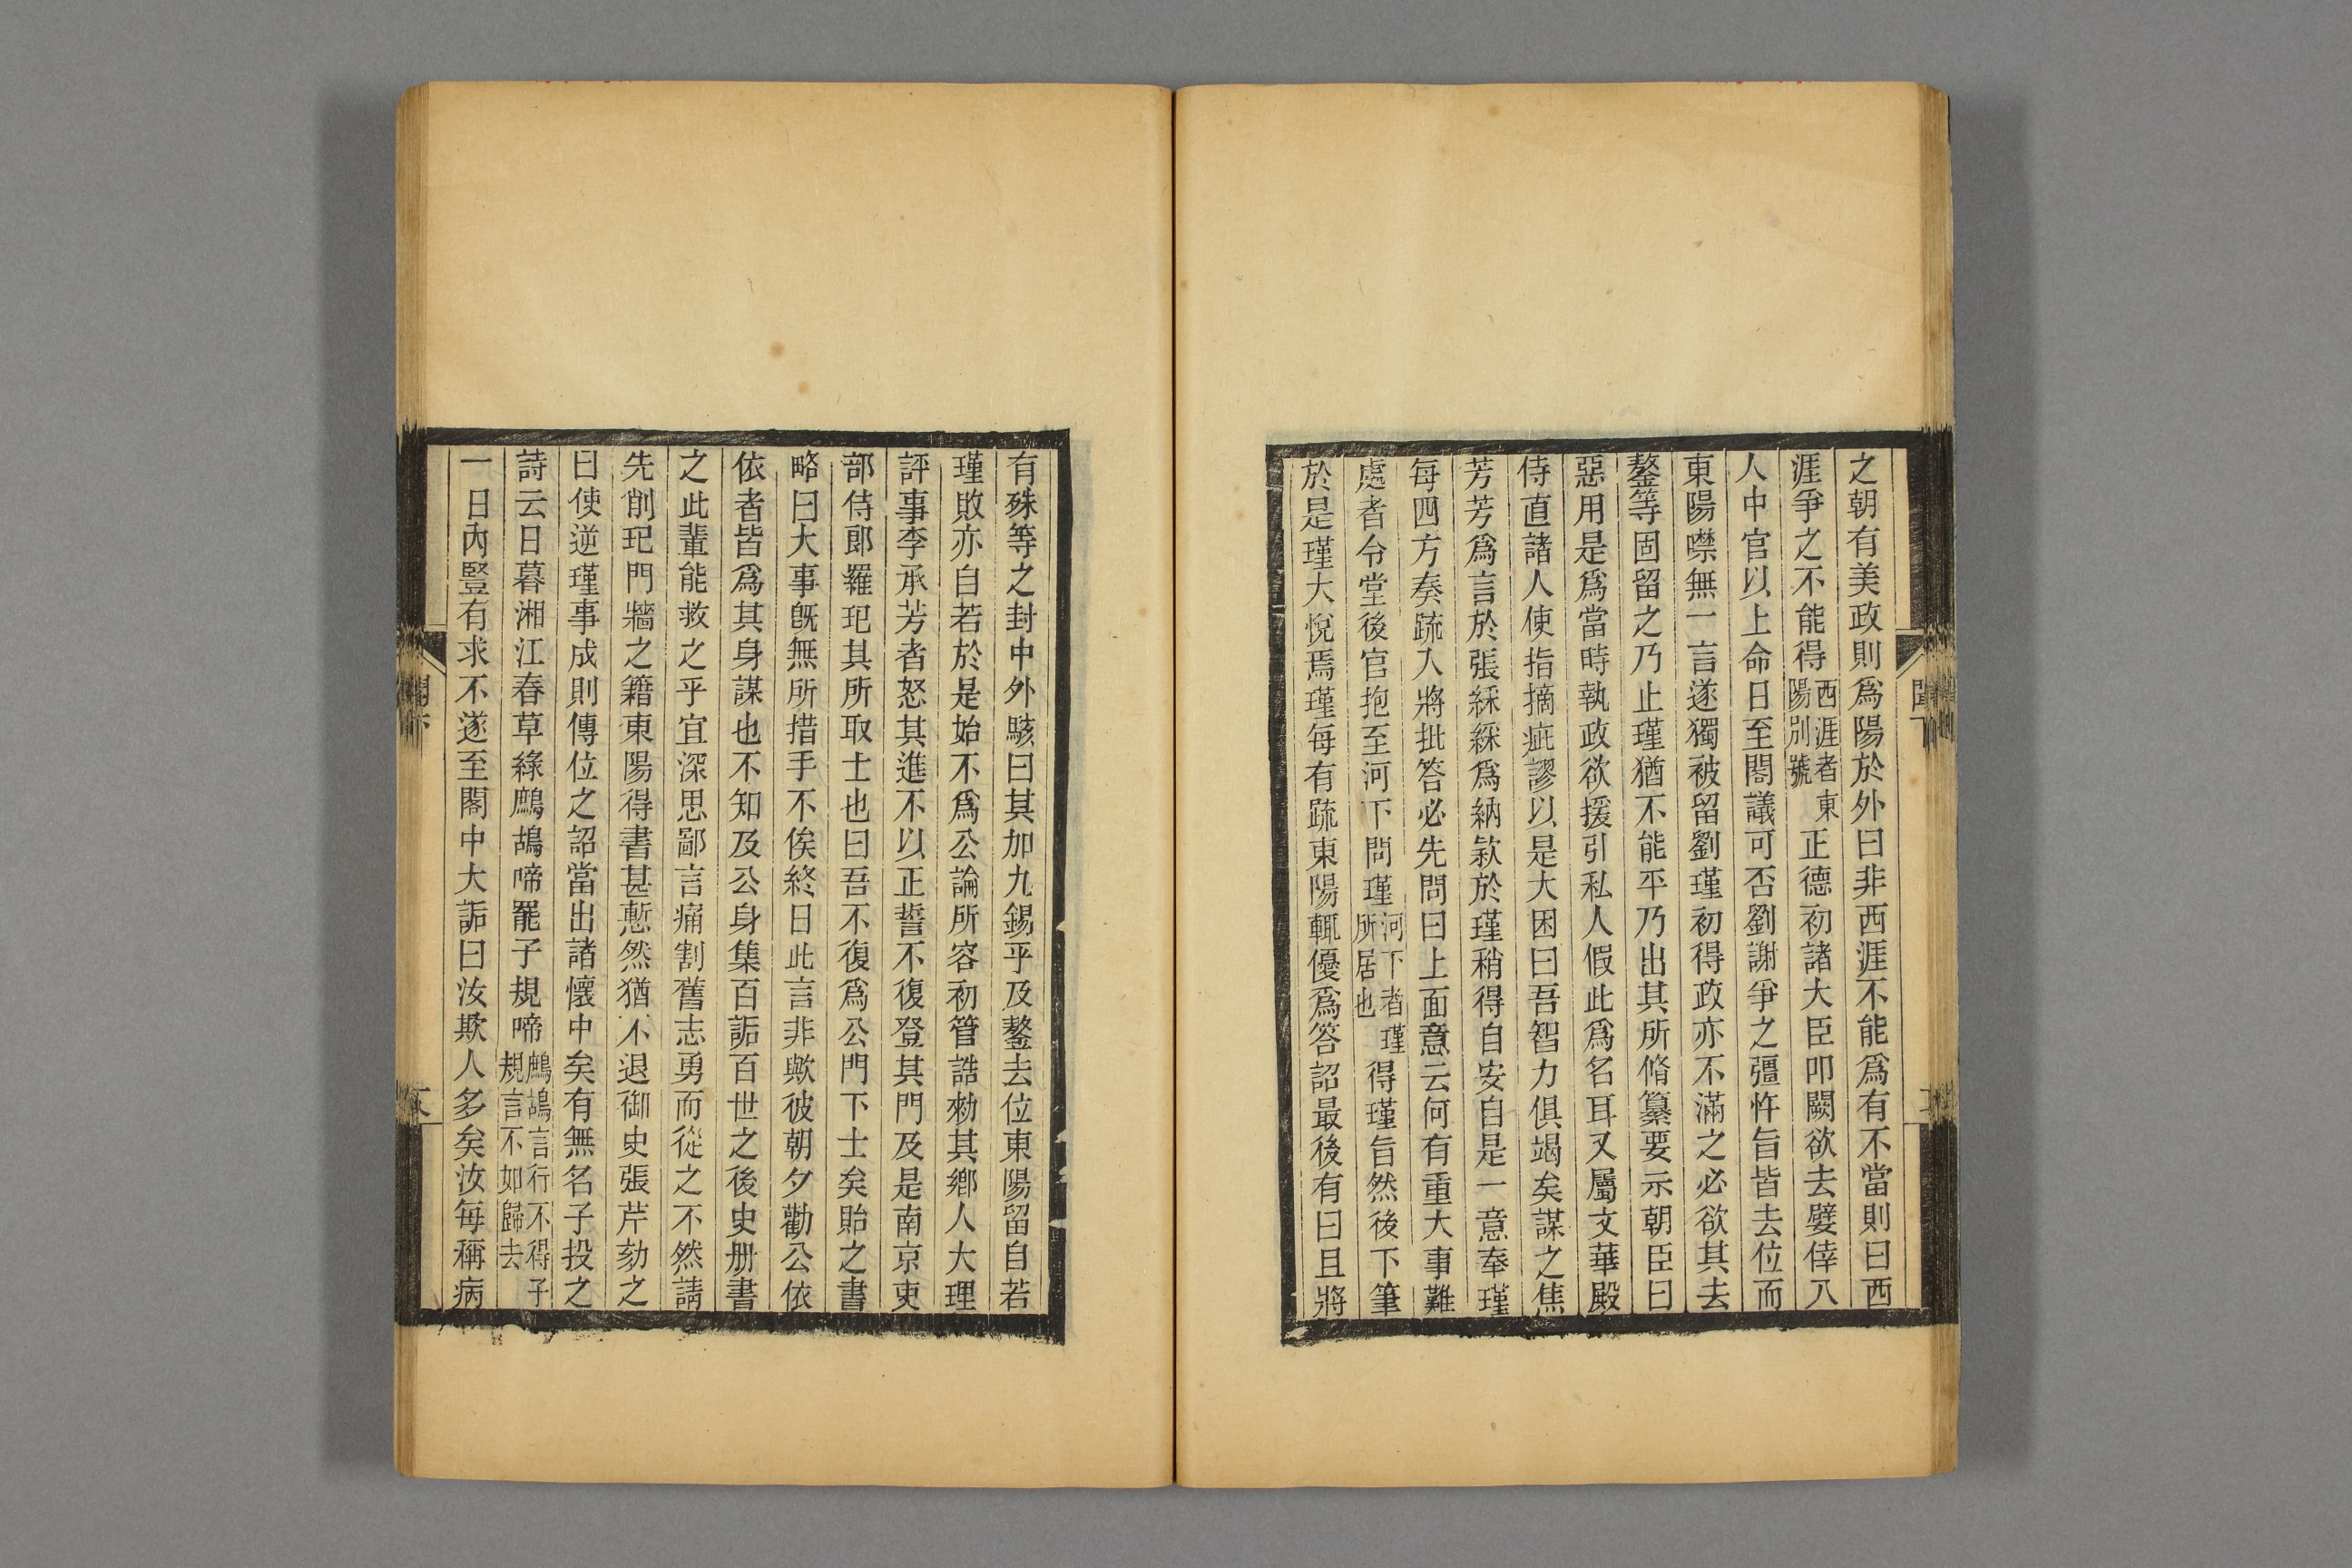 之朝有美政則爲陽於外曰非西涯不能爲有不當則曰西
涯爭之不能得西涯者東陽別號正德初諸大臣叩闕欲去嬖倖八
人中官以上命日至閣議可否劉謝爭之彊忤旨皆去位而
東陽噤無一言遂獨被留劉瑾初得政亦不滿之必欲其去
鏊等固留之乃止瑾猶不能平乃出其所脩纂要示朝臣曰
惡用是爲當時執政欲援引私人假此爲名耳又屬文華殿
侍直諸人使指摘疵謬以是大困曰吾智力俱竭矣謀之焦
芳芳爲言於張綵綵爲納欵於瑾稍得自安自是一意奉瑾
每四方奏疏入將批答必先問曰上面意云何有重大事難
處者令堂後官抱至河下問瑾河下者瑾所居也得瑾旨然後下筆
於是瑾大悅焉瑾每有疏東陽輒優爲答詔最後有曰且將
有殊等之封中外駭曰其加九錫乎及鏊去位東陽留自若
瑾敗亦自若於是始不爲公論所容初管誥勑其鄉人大理
評事李承芳者怒其進不以正誓不復登其門及是南京吏
部侍郎羅玘其所取士也曰吾不復爲公門下士矣貽之書
略曰大事旣無所措手不俟終日此言非歟彼朝夕勸公依
依者皆爲其身謀也不知及公身集百詬百世之後史册書
之此輩能救之乎宜深思鄙言痛割舊志勇而從之不然請
先削玘門牆之籍東陽得書甚慙然猶不退御史張芹劾之
曰使逆瑾事成則傳位之詔當出諸懷中矣有無名子投之
詩云日暮湘江春草綠鷓鴣啼罷子規啼鷓鴣言行不得子規言不如歸去
一日內豎有求不遂至閣中大詬曰汝欺人多矣汝每稱病